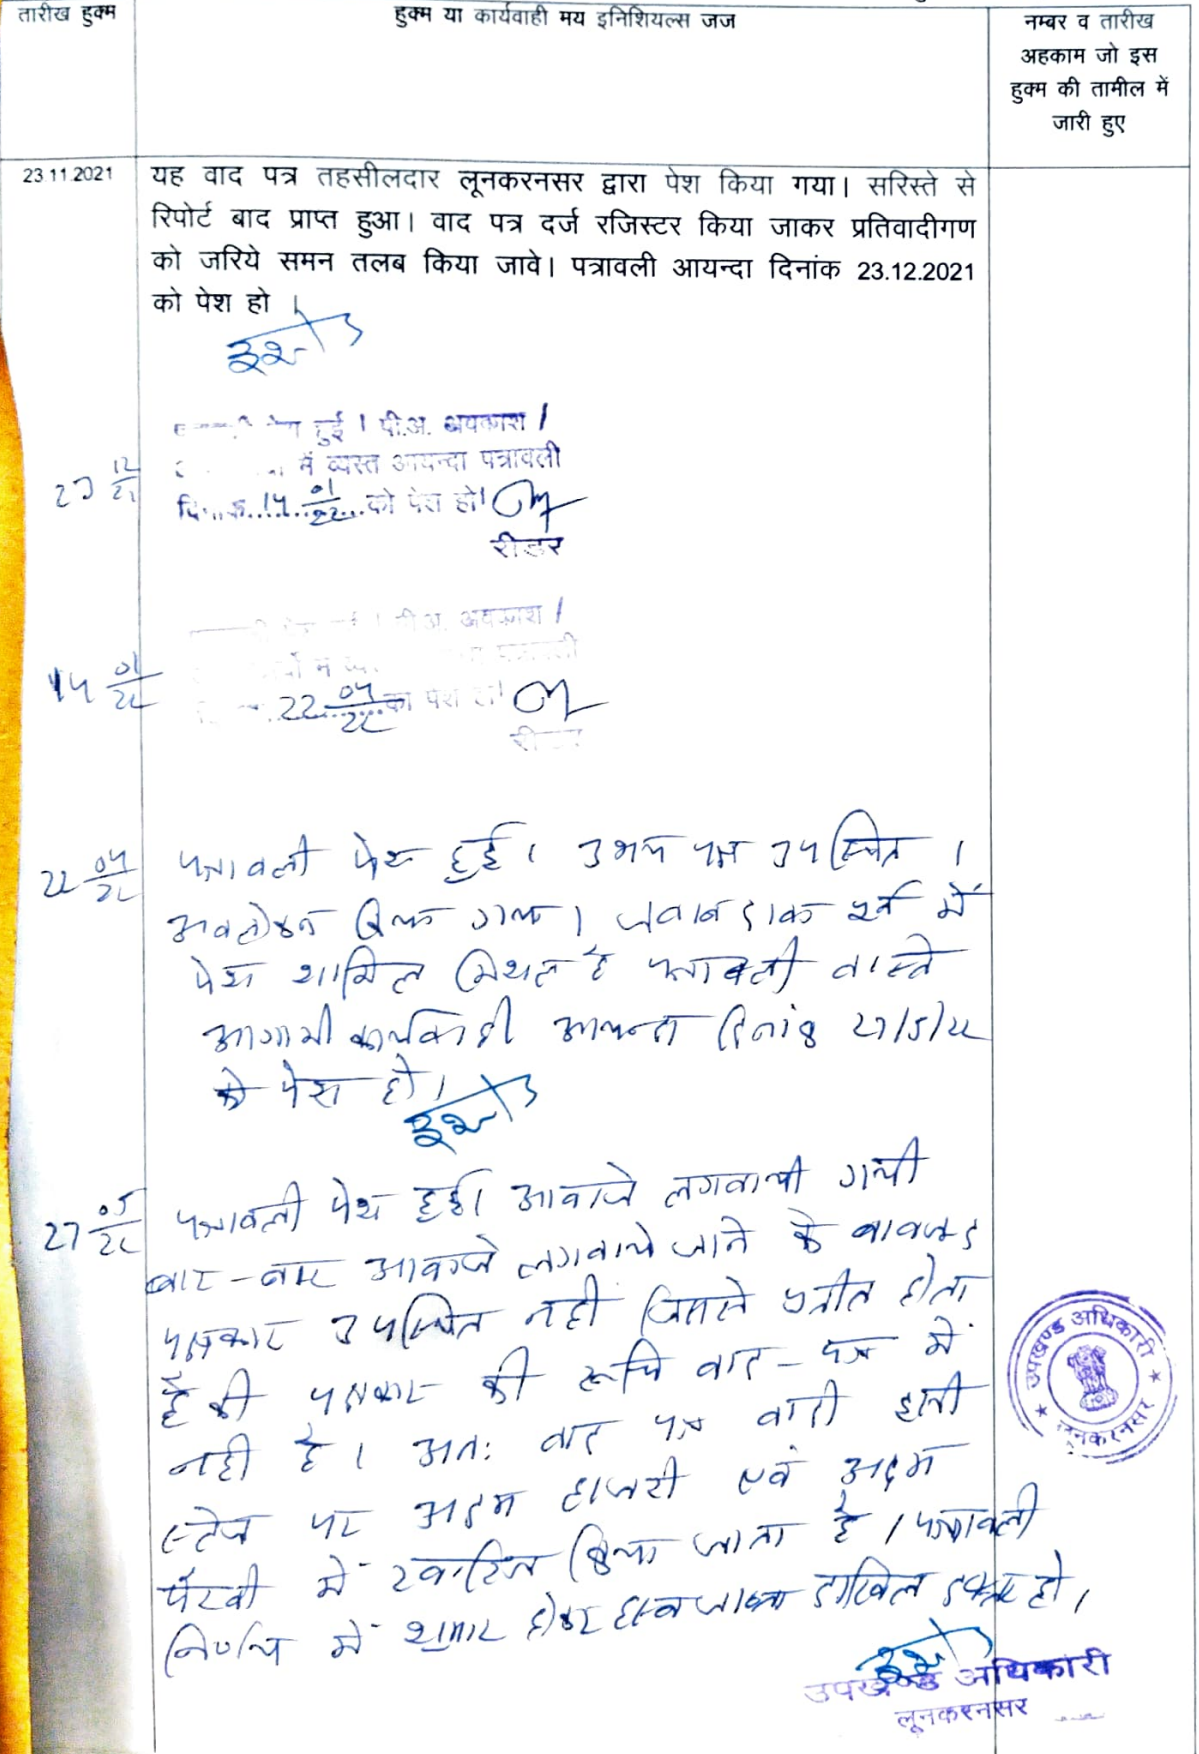 तारीख हुक्म
हुक्म या कार्यवाही मय इनिशियल्स जज
नम्बर व तारीख
अहकाम जो इस
हुक्म की तामील में
जारी हुए
23.11.2021
यह वाद पत्र तहसीलदार लूनकरनसर द्वारा पेश किया गया। सरिस्ते से
रिपोर्ट बाद प्राप्त हुआ। वाद पत्र दर्ज रजिस्टर किया जाकर प्रतिवादीगण
को जरिये समन तलब किया जावे। पत्रावली आयन्दा दिनांक 23.12.2021
को पेश हो ।
23 12/21
हुई । पी.अ. अवकाश /
में व्यस्त आयन्दा पत्रावली
14 01/22 को पेश हो।
रीडर
14 01/22
पी.अ. अवकाश /
पत्रावली
22 04/22 को पेश हो।
रीडर
22 04/22
पत्रावली पेश हुई। उभय पक्ष उपस्थित ।
अवलोकन किया गया। जवाब डाक में
पेश शामिल मिशल है पत्रावली वास्ते
आगामी कार्यवाही आयन्दा दिनांक 27/5/22
को पेश हो।
27 05/22
पत्रावली पेश हुई। आवाजे लगवायी गयी
बार-बार आवाजे लगवाये जाने के बावजूद
पक्षकार उपस्थित नहीं जिससे प्रतीत होता
है की पक्षकार की रूचि वाद-पत्र में
नही है। अतः वाद पत्र वादी इसी
स्टेज पर अदम हाजरी एवं अदम
पैरवी में खारिज किया जाता है। पत्रावली
निर्णय में शुमार होकर दाखिल दफ्तर हो।
उपखण्ड अधिकारी
लूनकरनसर
उपखण्ड अधिकारी
लूनकरनसर